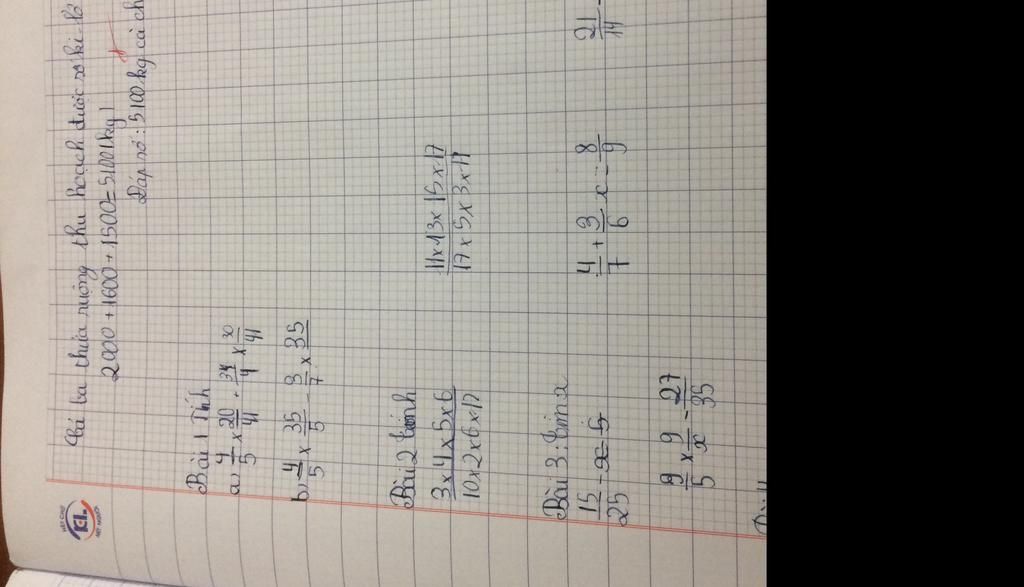 Cả ba thửa ruộng thu hoạch được số ki-lô
2000 + 1600 + 1500 = 5100 (kg)
Đáp số: 5100 kg cà ch
Bài 1 Tính
a) 4/5 x 20/41 + 34/4 x /41
b) 4/5 x 35/5 - 3/7 x 35
Bài 2 tính
3 x 4 x 5 x 6 / 10 x 2 x 6 x 17 11 x 13 x 15 x 17 / 17 x 5 x 3 x 11
Bài 3: tìm x
15/25 - x = 5 4/7 + 3/6 x = 8/9 21/14
9/5 x 9/x = 27/35
KL